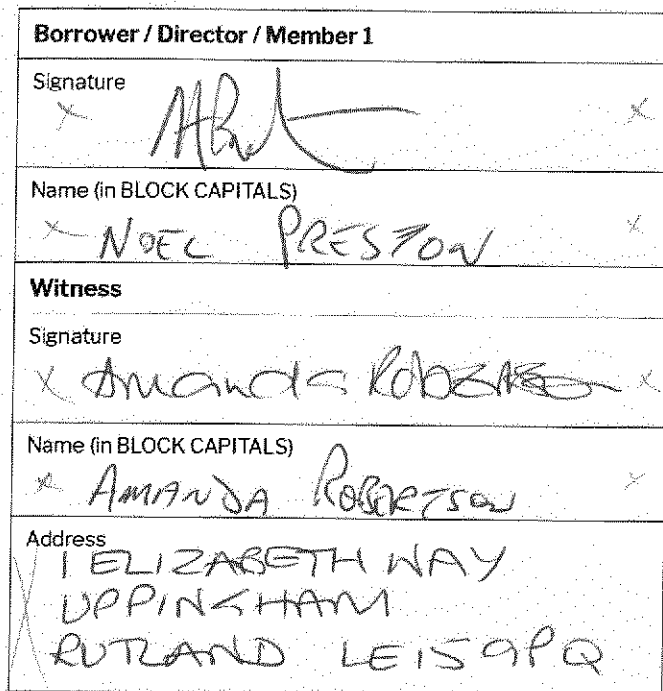 Borrower / Director / Member 1
Signature
x x
Name (in BLOCK CAPITALS)
x NOEL PRESTON x
Witness
Signature
x Amanda Robertson x
Name (in BLOCK CAPITALS)
x AMANDA ROBERTSON x
Address
1 ELIZABETH WAY
UPPINGHAM
RUTLAND LE15 9PQ